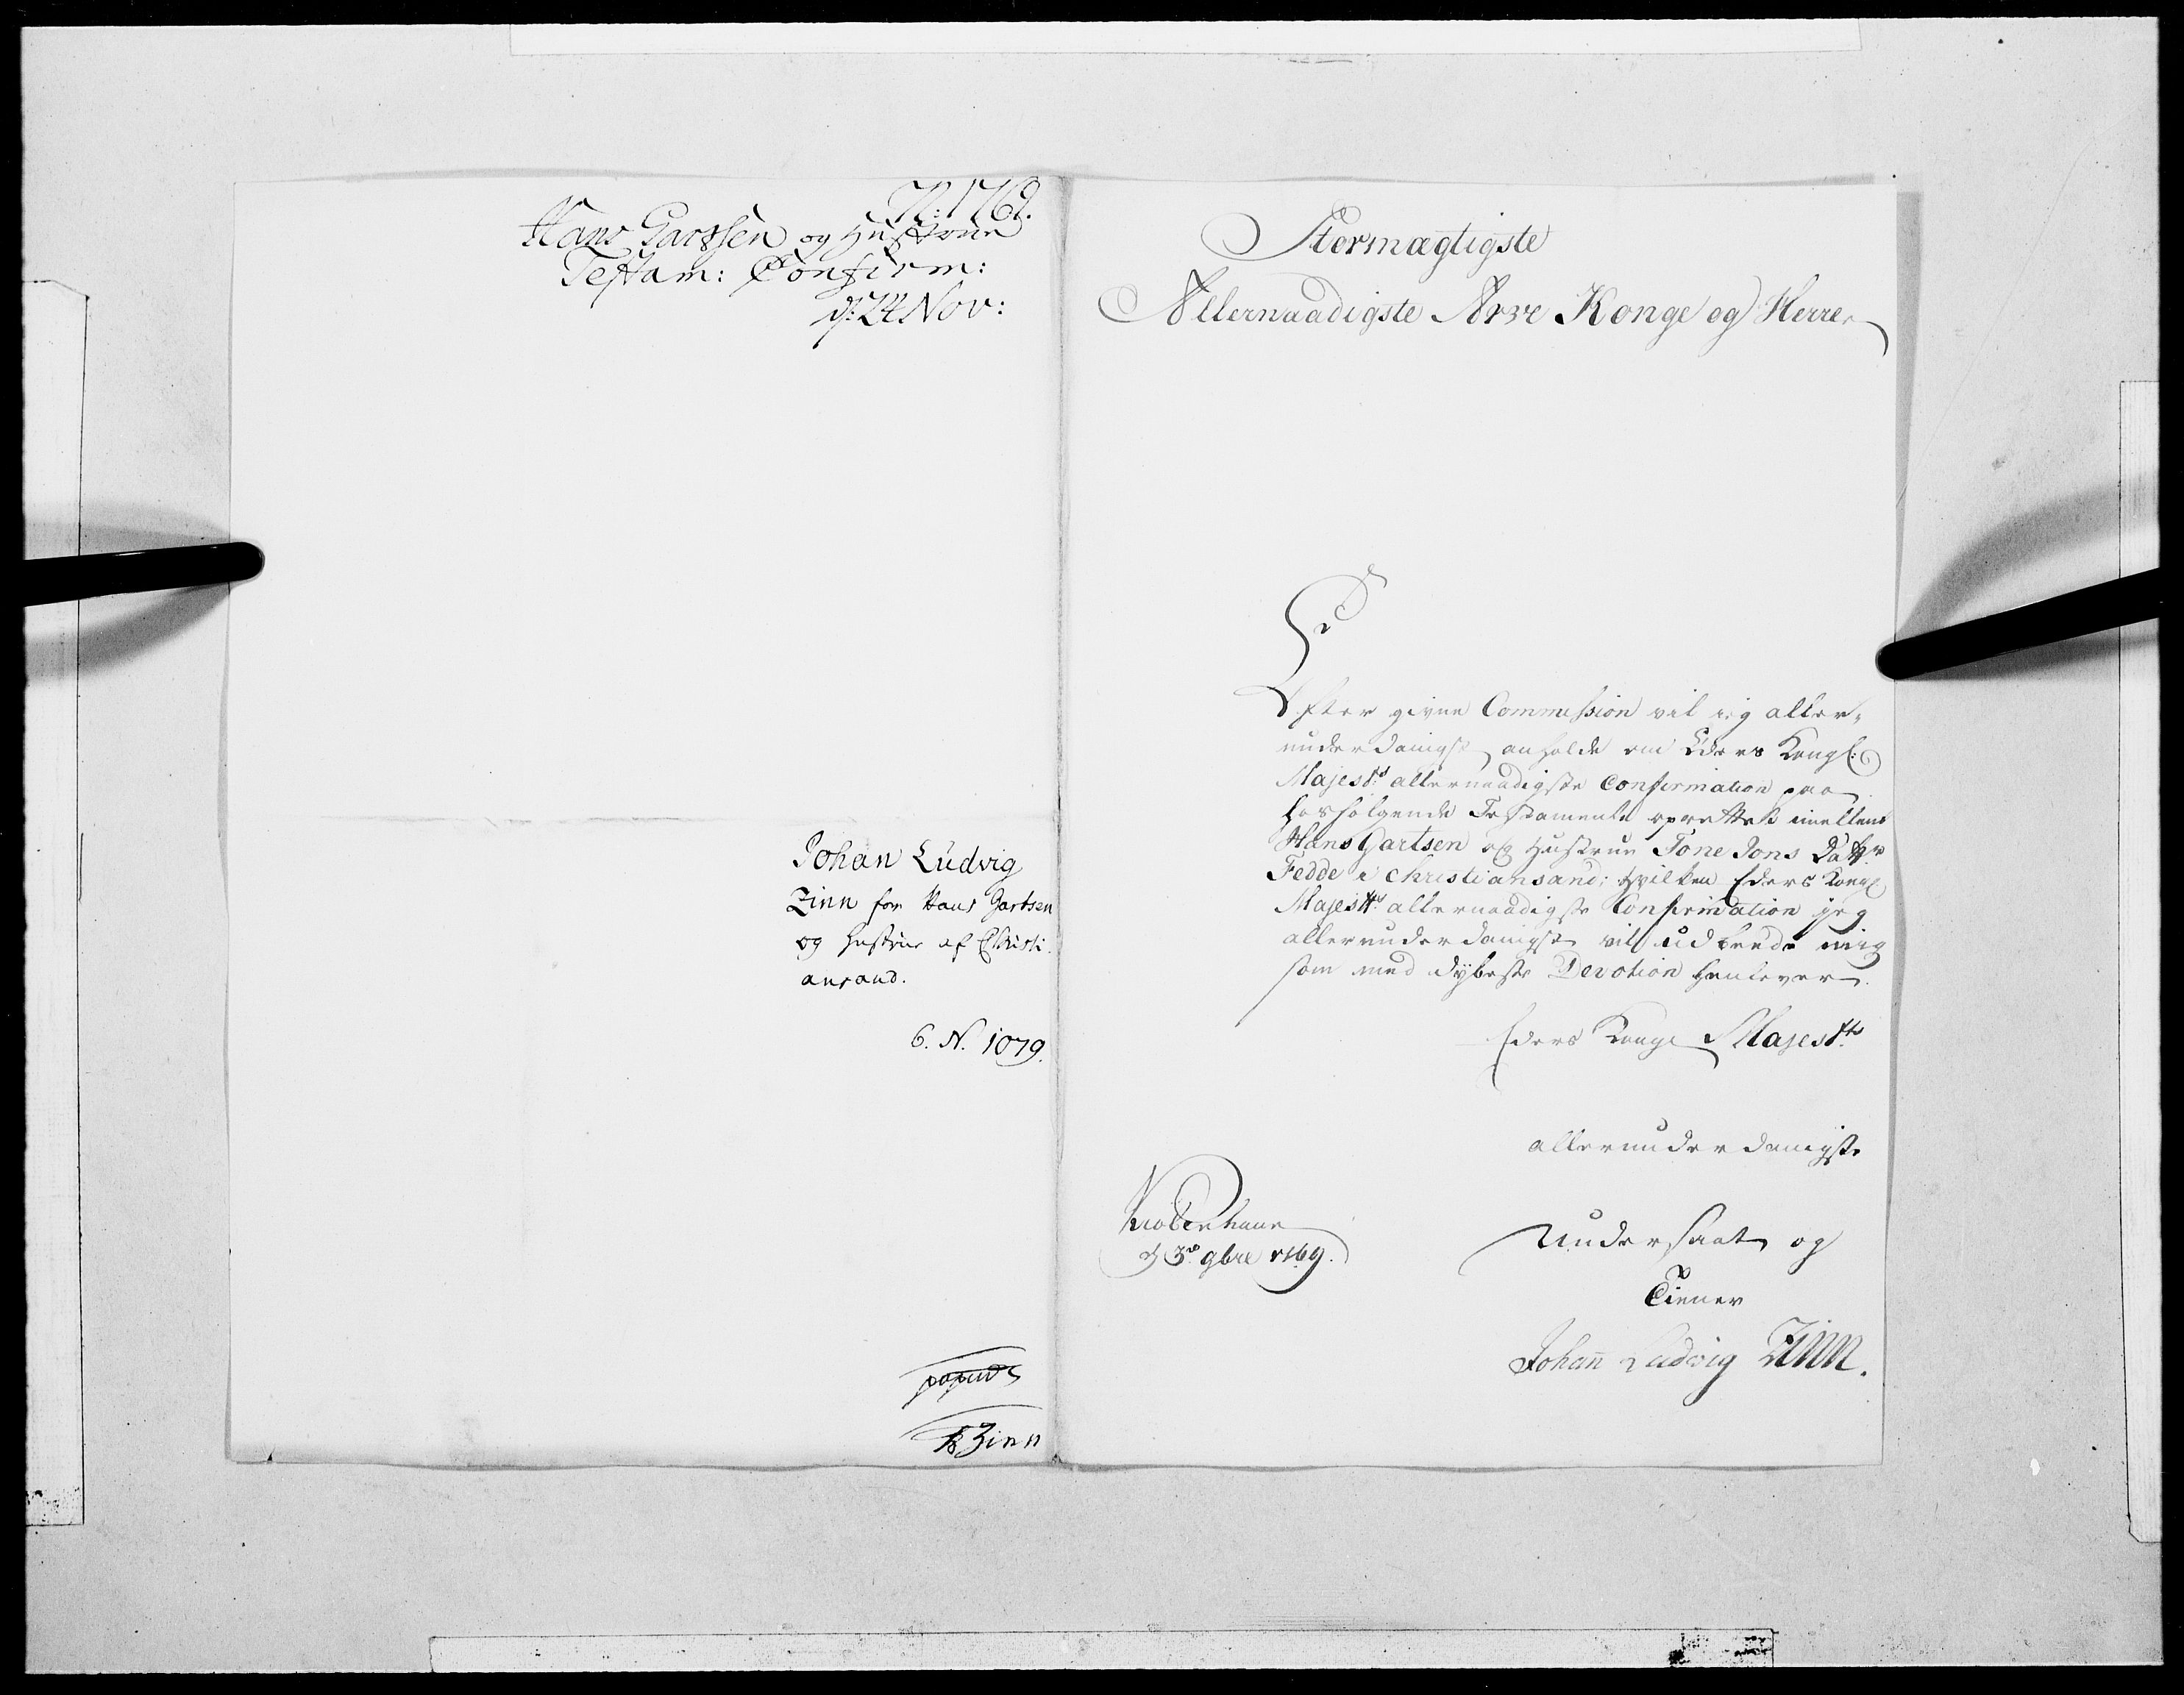 N: 1769.
Hans Garssen og Hustrue
Testam: Confirm:
d: 24 Nov:
Johan Ludvig
Zinn for Hans Gartsen
og Hustrue af Christi-
ansand.
6. N. 1079.
Zinn
Stormægtigste
Allernaadigste Arve Konge og Herre
Efter givne Commission vil ieg aller-
underdanigst anholde om Eders Kongl:
Majestts allernaadigste Confirmation paa
hosfølgende Testamente oprettet imellem
Hans Gartsen og Hustrue Tone Jons Dattr
Fedde i Christiansand; hvilken Eders Kongl
Majestts allernaadigste Confirmation jeg
allerunderdanigst vil udbende mig
som med dybeste Devotion henlever
Eders Kongl Majestts
allerunderdanigste
Kiøbenhavn
d 3de 9bre 1769.
Undersaat og
Tiener
Johan Ludvig Zinn.